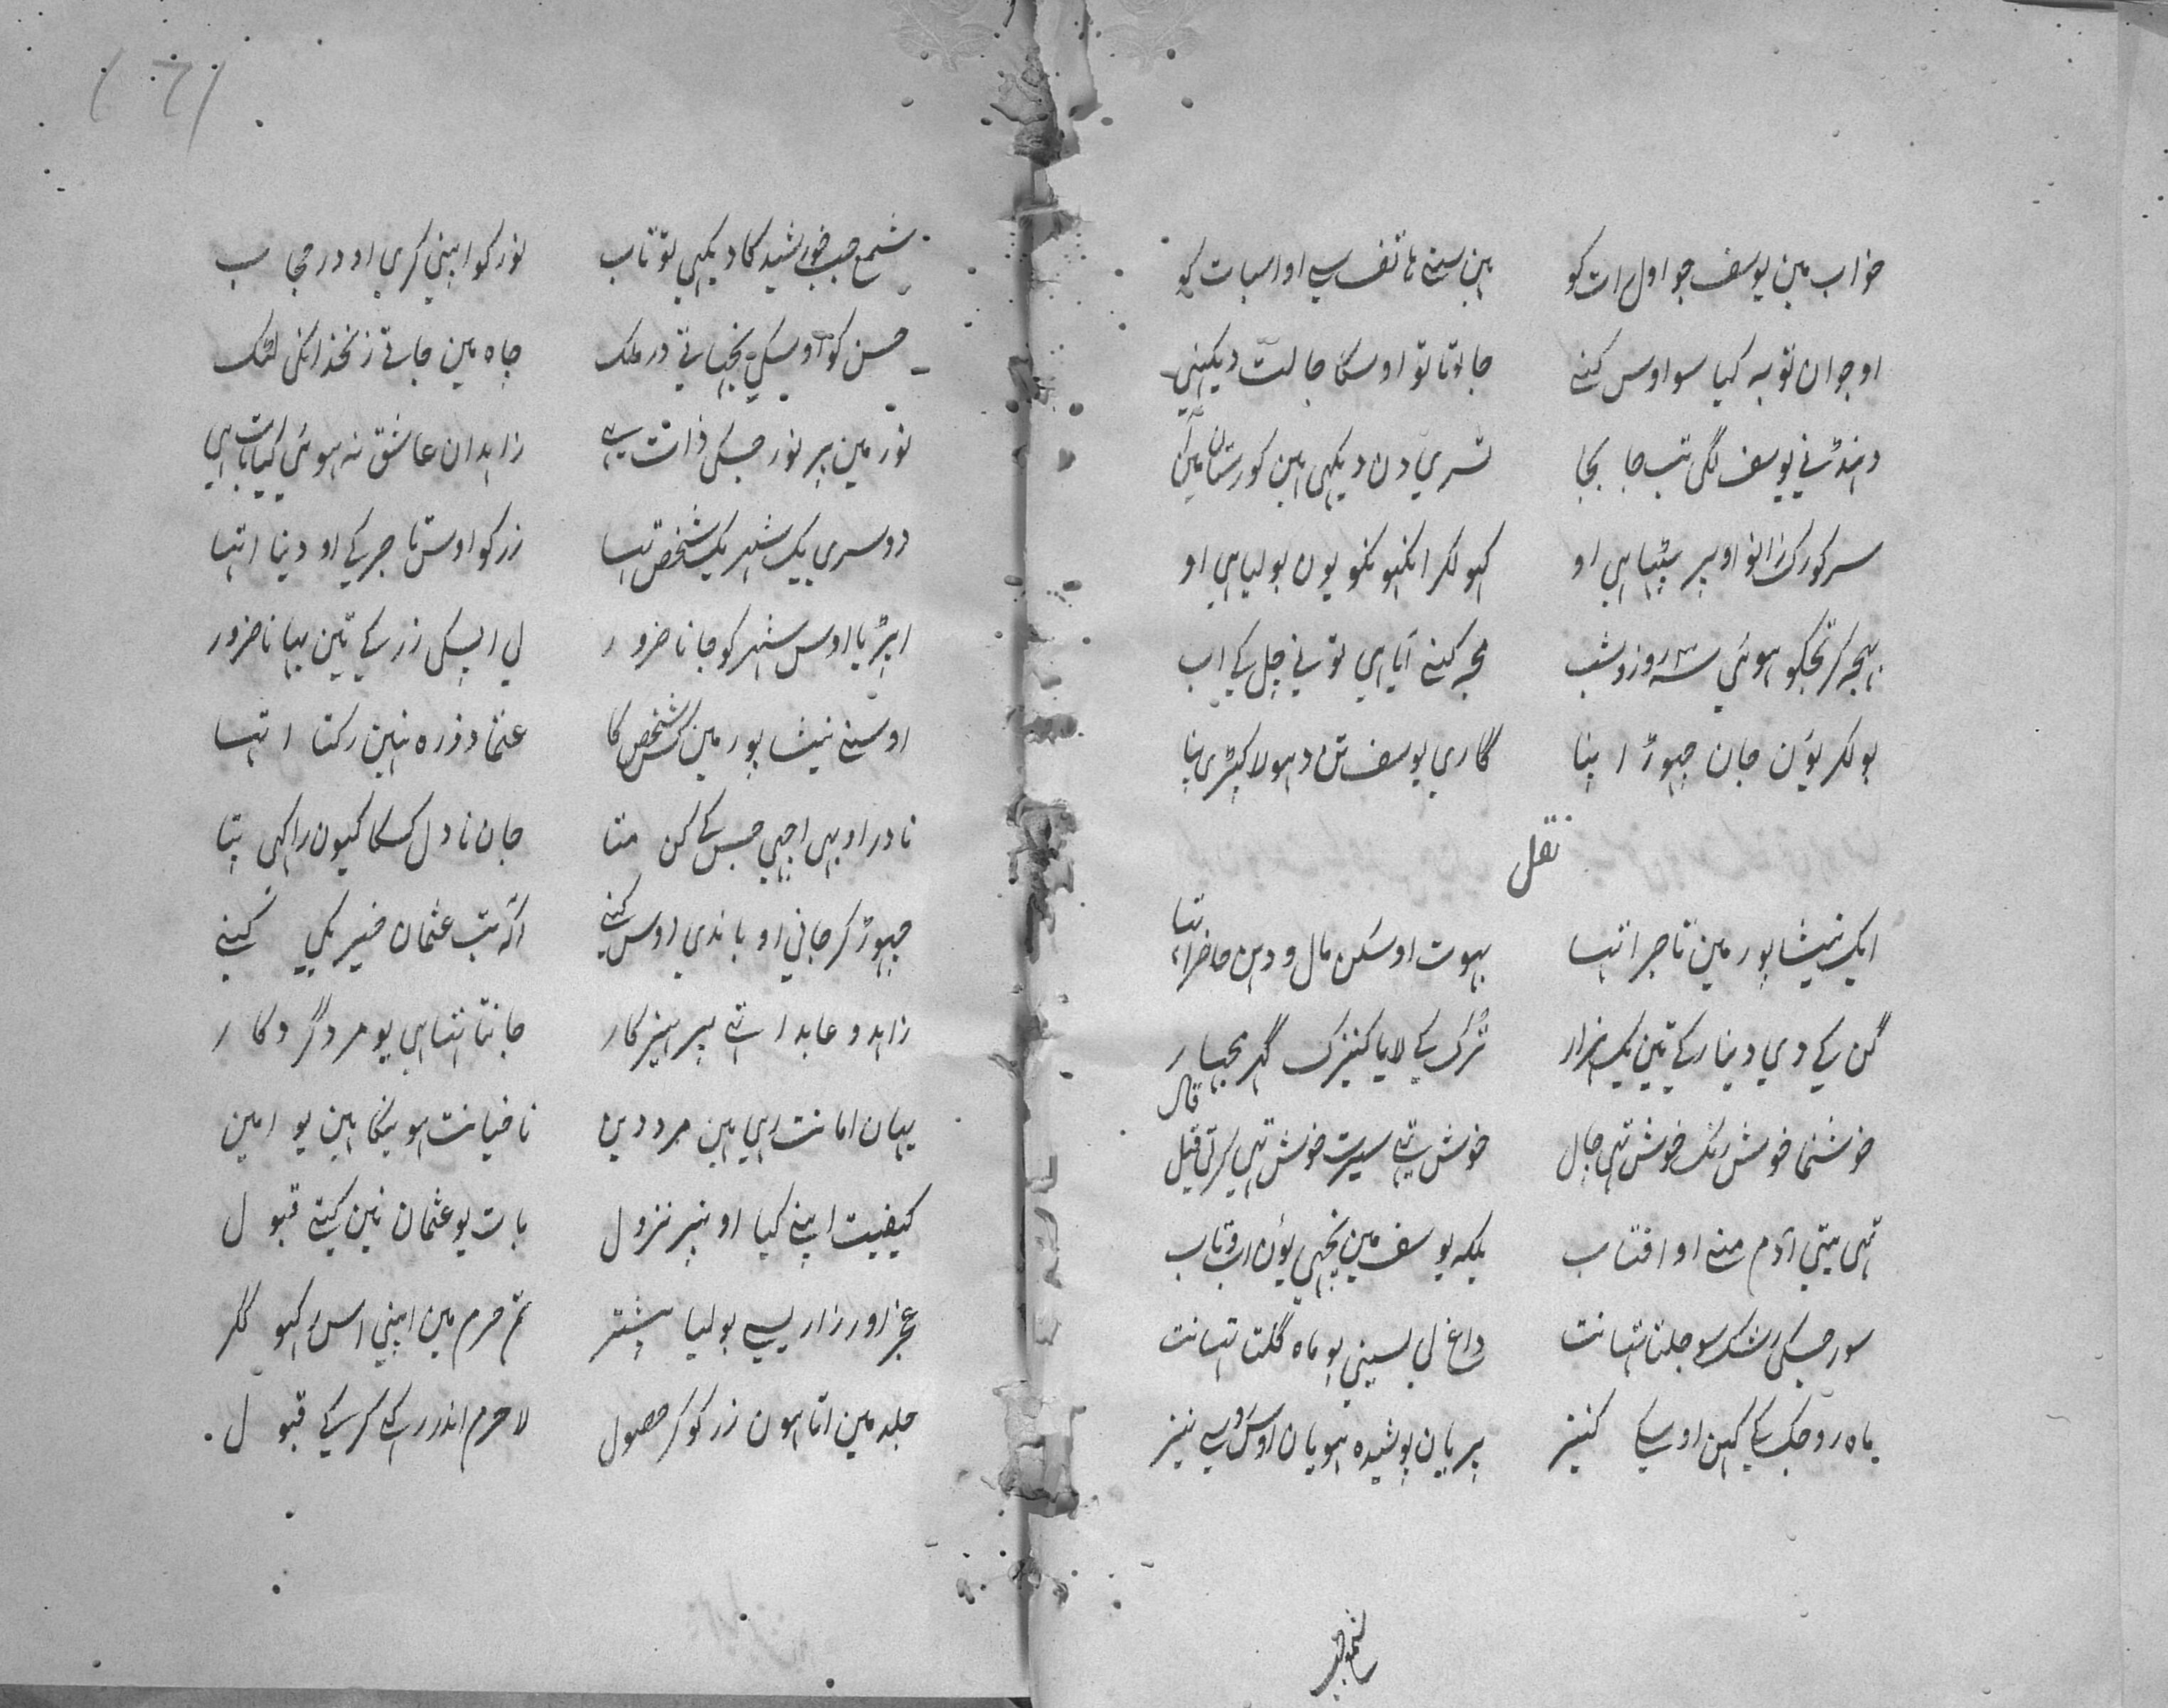 خواب مین یوسف جو اول رات کو ہین سنے ہاتف سے او اسبات کو
او جوان توبہ کیا سو اوس کنے جاتا تو اوسکا حالت دیکہنی
دہنڈنی یوسف لگی تب جا بجا تسری دن دیکہی ہین کورستان مین
سر کو رک زانو اوپر بیٹہیا ہی او کہولکر انکہونکو یون بولیا ہی او
بہیجہ کر تجکو ہوئی سہ روز و شب مجہ کنے آیا ہی تونی چل کے اب
بولکر یون جان چہوڑ اپنا گاری یوسف تن دہولا کپڑی پنا
نقل
ایک نیشاپور مین تاجر اتہا بہوت اوسکن مال و دہن حاضر اتہا
گن کے دی دینار کے تین یک ہزار ترک کے لایا کنیزک گہر بچہار
خوشنما خوش رنگ خوش تہی چال خوش تہی سیرت خوش تہی کرتی قیل قال
تہی بیتی آدم منے او افتاب بلکہ یوسف مین نچہی یون اب و تاب
سور جسکی رشک سو جلتا تہا نت داغ لی سینے پو ماہ گلتا تہا نت
ماہ رو جگ کے کہین اوسکے کنیز پریان پوشیدہ ہویان اوس روسے نیز
شمع جب
شمع جب خورشید کا دیکہی تو تاب نور کو اپنی کری او در حجاب
حسن کو اوسکی نچہپاتی در ملک چاہ مین جاتے زنخدانکی لٹک
نور مین پر نور جسکی ذات ہے زاہدان عاشق نہ ہوئی کیا بات ہی
دوسری یک شہر یک شخص تہا زر کو اوس تاجر کے او دینا اتہا
اپڑیا اوس شہر کو جانا ضرور لی اپسکی زر کے تین بہانا ضرور
اوسنے نیشاپور مین کس شخص کا عتماد ذرہ نہین رکتا اتہا
نادر او بہی اچہی جس کے کن متا جان نا دل کسکا کیون راکہی پتا
چہوڑ کر جانی او باندی اوس کنے اگہ تب عثمان خیر یکی کنے
زاہد و عابد اتہے پرہیزکار جانتا تہا ہی یو مرد گردکار
یہان امانت رہی ہین مرد دین نا خیانت ہویگا ہین یو امین
کیفیت اپنے کیا او نپر نزول بات یو عثمان نین کیتے قبول
عجز اور زاری سے بولیا پیشتر تم حرم مین اپنی اس رکہو گکر
جلد مین اتا ہون زر کو کر حصول لا حرم اندر رکہے کر کے قبول